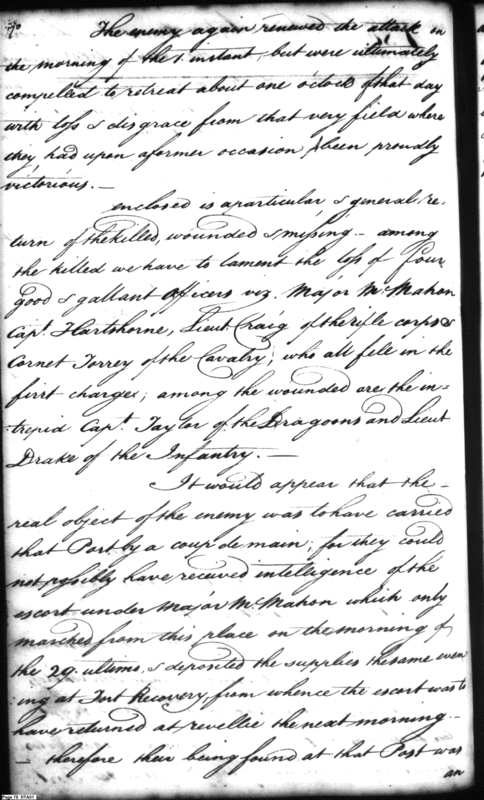 The enemy again renewed the attack on
the morning of the 1. instant, but were ultimately
compelled to retreat about one oClock of that day
with loss & disgrace from that very field where
they had upon a former occasion, been proudly
victorious.—
enclosed is a particular & general re-
turn of the killed, wounded & missing — among
the killed we have to lament the loss of four
good & gallant officers viz. Major McMahon
Capt. Hartshorne, Lieut Craig of the rifle corps &
Cornet Torrey of the Cavalry; who all fell in the
first charge; among the wounded are the in-
trepid Capt. Taylor of the Dragoons and Lieut
Drake of the Infantry.—
It would appear that the-
real object of the enemy was to have carried
that Post by a coup de main; for they could
not possibly have received intelligence of the
escort under Major McMahon which only
marched from this place on the morning of
the 29. ultimo, & deposited the supplies the same even
ing at Fort Recovery, from whence the escort was to
have returned at revellie the next morning-
therefore their being found at that Post was
an